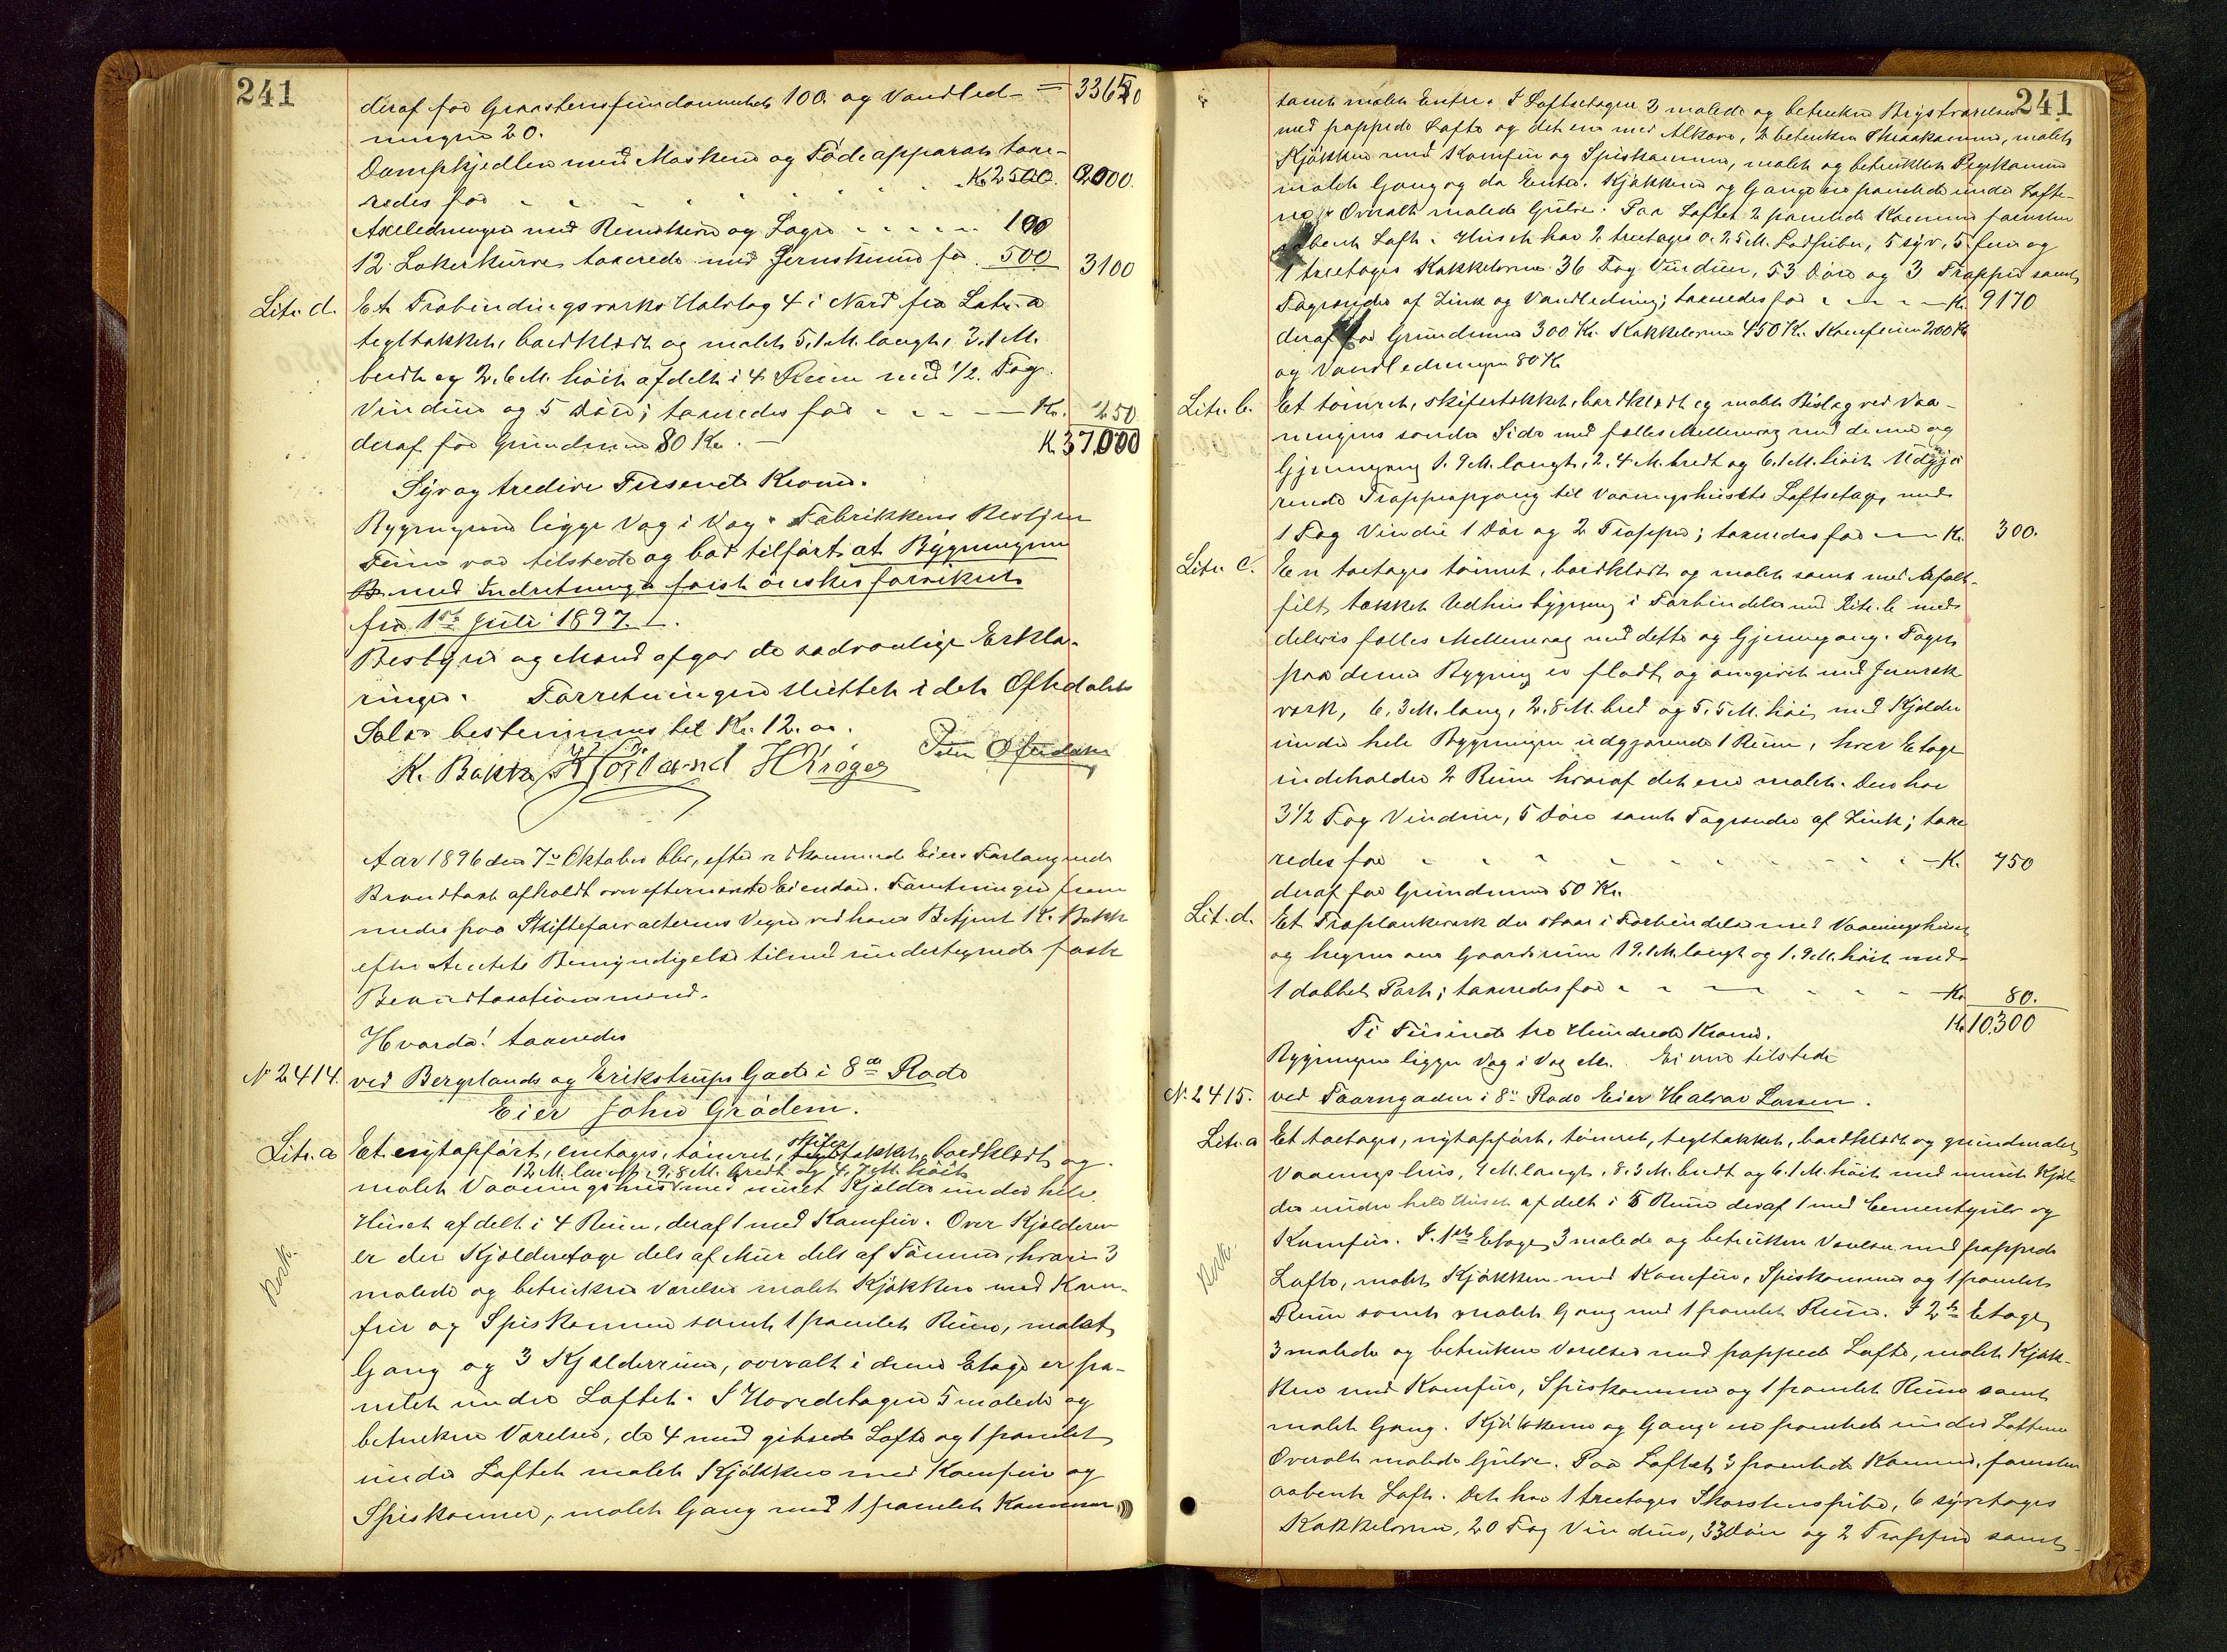 241
deraf for Graastensfundamentet 100 og Vandled- = 33650
ningen 20.
Dampkjedlen med Maskine og Födeapparat taxe-
redes for - - - - - Kr 2500. 2000.
Axelledninger med Remskiver og Lagre - - - - - 100
12 Lakerkurve taxerede med Jernskinner for 500 3100
Litr. d. Et Trabindingsværks Halvtag 4 i Nord fra Litr. a
tegltækket, bordklædt og malet 5,1 M. langt, 3,1 M.
bredt og 2,6 M. höit afdelt i 4 Rum med 1/2 Fag
Vinduer og 5 Döre; taxeredes for - - - - Kr. 250
deraf for Grundmur 80 Kr. - K 37,000
Syv og tredive Tusende Kroner.
Bygningerne ligger Vag i Vag. Fabrikkens Bestyrer
var tilstede og bad tilført at Bygningerne
med Indretninger først önskes forsikret
fra 1ste Juli 1897.
Bestyrer og Mænd afgav de sædvanlige Erklæ-
ringer. Forretningen sluttet i det Oftedalske
Salær bestemmes til Kr. 12.00.
K. Bakke H. Kröger
Aar 1896 den 7de Oktober blev, efter vedkommende Eiers Forlangende
Brandtaxt afholdt over efternævnte Eiendom. Forretningen frem
medes paa Skifteforvalterens Vegne ved hans Betjent K. Bakke
efter Amtets Bemyndigelse tilmed undertegnede faste
Brandtaxationsmænd.
Hvorda! taxeredes
No 2414. ved Bergelands og Erikstrups Gade i 8de Rode
Eier John Grödem.
Litr. a Et nyt opført, enetages, tömret, skifertækket, bordklædt og
12 M. langt, 9,8 M. bredt og 4,7 M. höit
malet Vaaningshus med muret Kjælder under hele
Huset afdelt i 4 Rum, deraf 1 med Komfur. Over Kjælderen
er der Kjælderetage dels af Mur dels af Tömmer, hvori 3
malede og betrukne Værelser malet Kjökken med Kom-
fur og Spiskammer samt 1 panelet Rum, malet
Gang og 3 Kjælderrum, overalt i denne Etage er pa-
nelet under Loftet. I Hovedetagen 5 malede og
betrukne Værelser, de 4 med gibsede Lofte og 1 panelet
under Loftet malet Kjökken med Komfur og
Spiskammer, malet Gang med 1 panelet Kammer
241
samt malet Entre. I Loftsetagen 2 malede og betrukne Bryst værelser
med pappede Lofte og det ene med Alkove, 2 betrukne Skraakamme, malet
Kjökken med Komfur og Spiskammer, malet og betrukket Pigekammer
malet Gang og do Entre. Kjökkener og Gange ere panelede under Lofte-
ne. Overalt malede Gulve. Paa Loftet 2 panelede Kammer forresten
aabent Loft. Huset har 2 treetages a 2,5 M. Ladpiber, 5 syv, 5 fire og
1 treetages Kakkelovne 36 Fag Vinduer, 53 Döre og 3 Trapper samt
Tagrender af Zink og Vandledning; taxeredes for - - - Kr. 9170
deraf for Grundmur 300 Kr. Kakkelovne 450 Kr. Komfurer 200 Kr
og Vandledningen 80 Kr
Litr. b. Et tömret, skifertækket, bordklædt og malet Bislag ved Vaa-
ningens söndre Side med fælles Mellemvæg med denne og
Gjennemgang 1,9 M. langt, 2,4 M. bredt og 6,1 M. höit Udgjö
rende Trappeopgang til Vaaningshusets Loftsetage, med
1 Fag Vindu 1 Dör og 2 Trapper; taxeredes for - - Kr. 300.
Litr. c. En toetages tömret, bordklædt og malet samt med Asfalt-
filt tækket Udhusbygning i Forbindelse med Litr. b med
delvis fælles Mellemvæg med dette og Gjennemgang. Taget
paa denne Bygning er fladt og omgivet med Jernræk
værk, 6,3 M. lang, 2,8 M. bred og 5,5 M. höi, med Kjælder
under hele Bygningen udgjörende 1 Rum, hver Etage
indeholder 2 Rum hvoraf det ene malet. Den har
3 1/2 Fag Vinduer, 5 Döre samt Tagrender af Zink; taxe
redes for - - - - - - - - - Kr. 750
deraf for Grundmur 50 Kr.
Litr. d. Et Træplankeværk der staar i Forbindelse med Vaaningshuset
og hegner om Gaardsrum 19,1 M. langt og 1,9 M. höit med
1 dobbelt Port; taxeredes for - - - - - - Kr 80.
Ti Tusinde tre Hundrede Kroner. Kr 10300
Bygningerne ligger Vag i Vag etc. Eieren tilstede
No. 2415. ved Taarngaden i 8de Rode Eier Halvor Larsen.
Litr. a Et toetages, nyt opført, tömret, tegltækket, bordklædt og grundmalet
Vaaningshus, 9 M. langt, 8,3 M. bredt og 6,1 M. höit med muret Kjæl-
der under hele Huset afdelt i 5 Rum deraf 1 med Cementgulv og
Komfur. I 1ste Etage 3 malede og betrukne Værelser med pappede
Lofte, malet Kjökken med Komfur, Spiskammer og 1 panelet
Rum samt malet Gang med 1 panelet Rum. I 2den Etage
3 malede og betrukne Værelser med pappede Lofte, malet Kjök-
ken med Komfur, Spiskammer og 1 panelet Rum samt
malet Gang. Kjökkener og Gange ere panelede under Loftene
Overalt malede Gulve. Paa Loftet 3 panelede Kammer, forresten
aabent Loft. Det har 1 treetages Skorstenspibe, 6 syvetages
Kakkelovne, 20 Fag Vinduer, 33 Döre og 2 Trapper samt